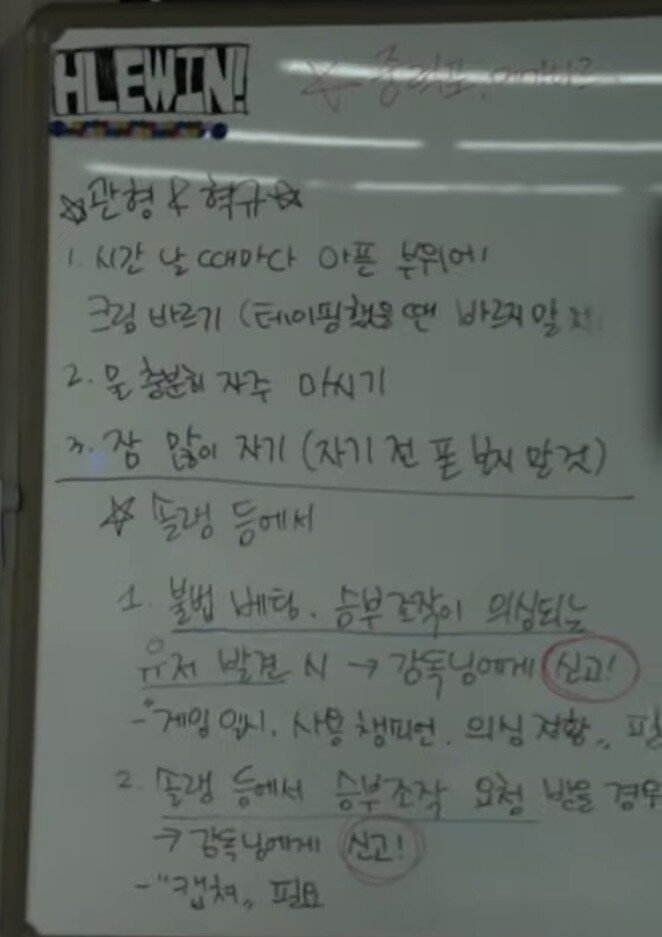 HLEWIN!
☆관형 & 혁규☆
1. 시간 날 때마다 아픈 부위에
크림 바르기 (테이핑했을 땐 바르지 말
2. 물 충분히 자주 마시기
3. 잠 많이 자기 (자기 전 폰 보지 말 것)
☆ 솔랭 등에서
1. 불법 베팅. 승부조작이 의심되는
유저 발견 시 → 감독님에게 신고!
-"게임 일시, 사용 챔피언. 의심 정황„
2. 솔랭 등에서 승부조작 요청 받을 경우
→ 감독님에게 신고!
-"캡쳐„ 필요